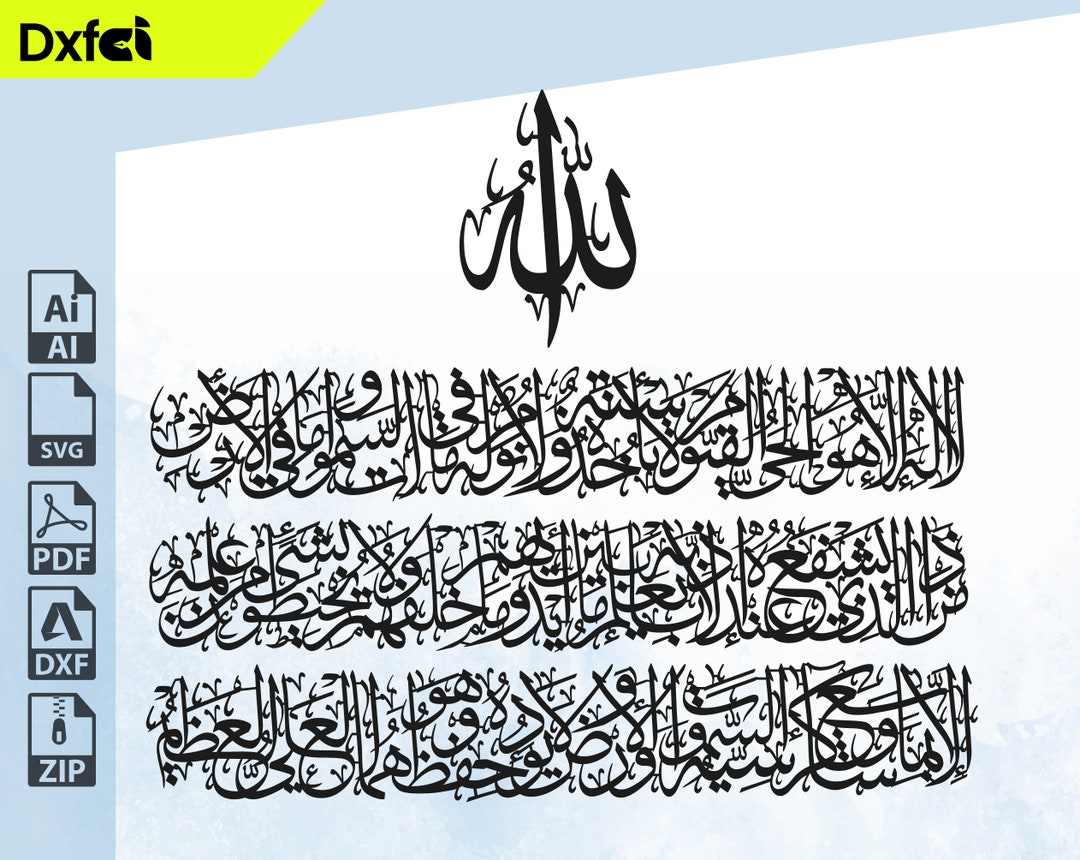 Dxfci
Ai
AI
SVG
PDF
DXF
ZIP
الله
لا إله إلا هو الحي القيوم لا تأخذه سنة ولا نوم له ما في السموات وما في الأرض
من ذا الذي يشفع عنده إلا بإذنه يعلم ما بين أيديهم وما خلفهم ولا يحيطون بشيء من علمه
إلا بما شاء وسع كرسيه السموات والأرض ولا يؤده حفظهما وهو العلي العظيم